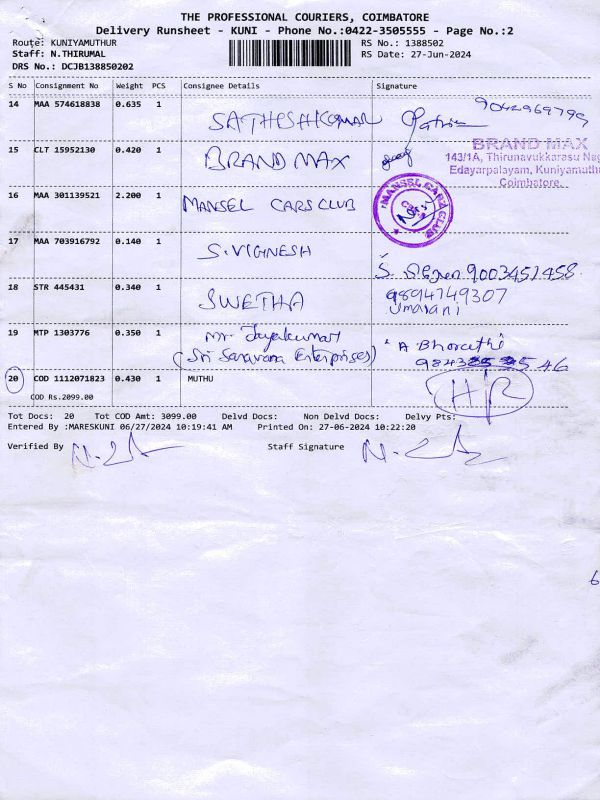 THE PROFESSIONAL COURIERS, COIMBATORE
Delivery Runsheet - KUNI - Phone No.:0422-3505555 - Page No.:2
Route: KUNIYAMUTHUR RS No.: 1388502
Staff: N.THIRUMAL RS Date: 27-Jun-2024
DRS No.: DCJB138850202
S No Consignment No Weight PCS Consignee Details Signature
14 MAA 574618838 0.635 1 SATHESHKUMAR 9042969799
15 CLT 15952130 0.420 1 BRAND MAX
BRAND MAX
143/1A, Thirunavukkarasu Nag
Edayarpalayam, Kuniyamuth
Coimbatore.
16 MAA 301139521 2.200 1 MANSEL CARS CLUB
MANSEL CARS CLUB
17 MAA 703916792 0.140 1 S.VIGNESH
9003451458
18 STR 445431 0.340 1 SWETHA
9894749307
Umarani
19 MTP 1303776 0.350 1 Mr Jayakumar
(Sri Saravana Enterprises) A Bharathi
20 COD 1112071823 0.430 1 MUTHU
COD Rs.2099.00
Tot Docs: 20 Tot COD Amt: 3099.00 Delvd Docs: Non Delvd Docs: Delvy Pts:
Entered By :MARESKUNI 06/27/2024 10:19:41 AM Printed On: 27-06-2024 10:22:20
Verified By Staff Signature